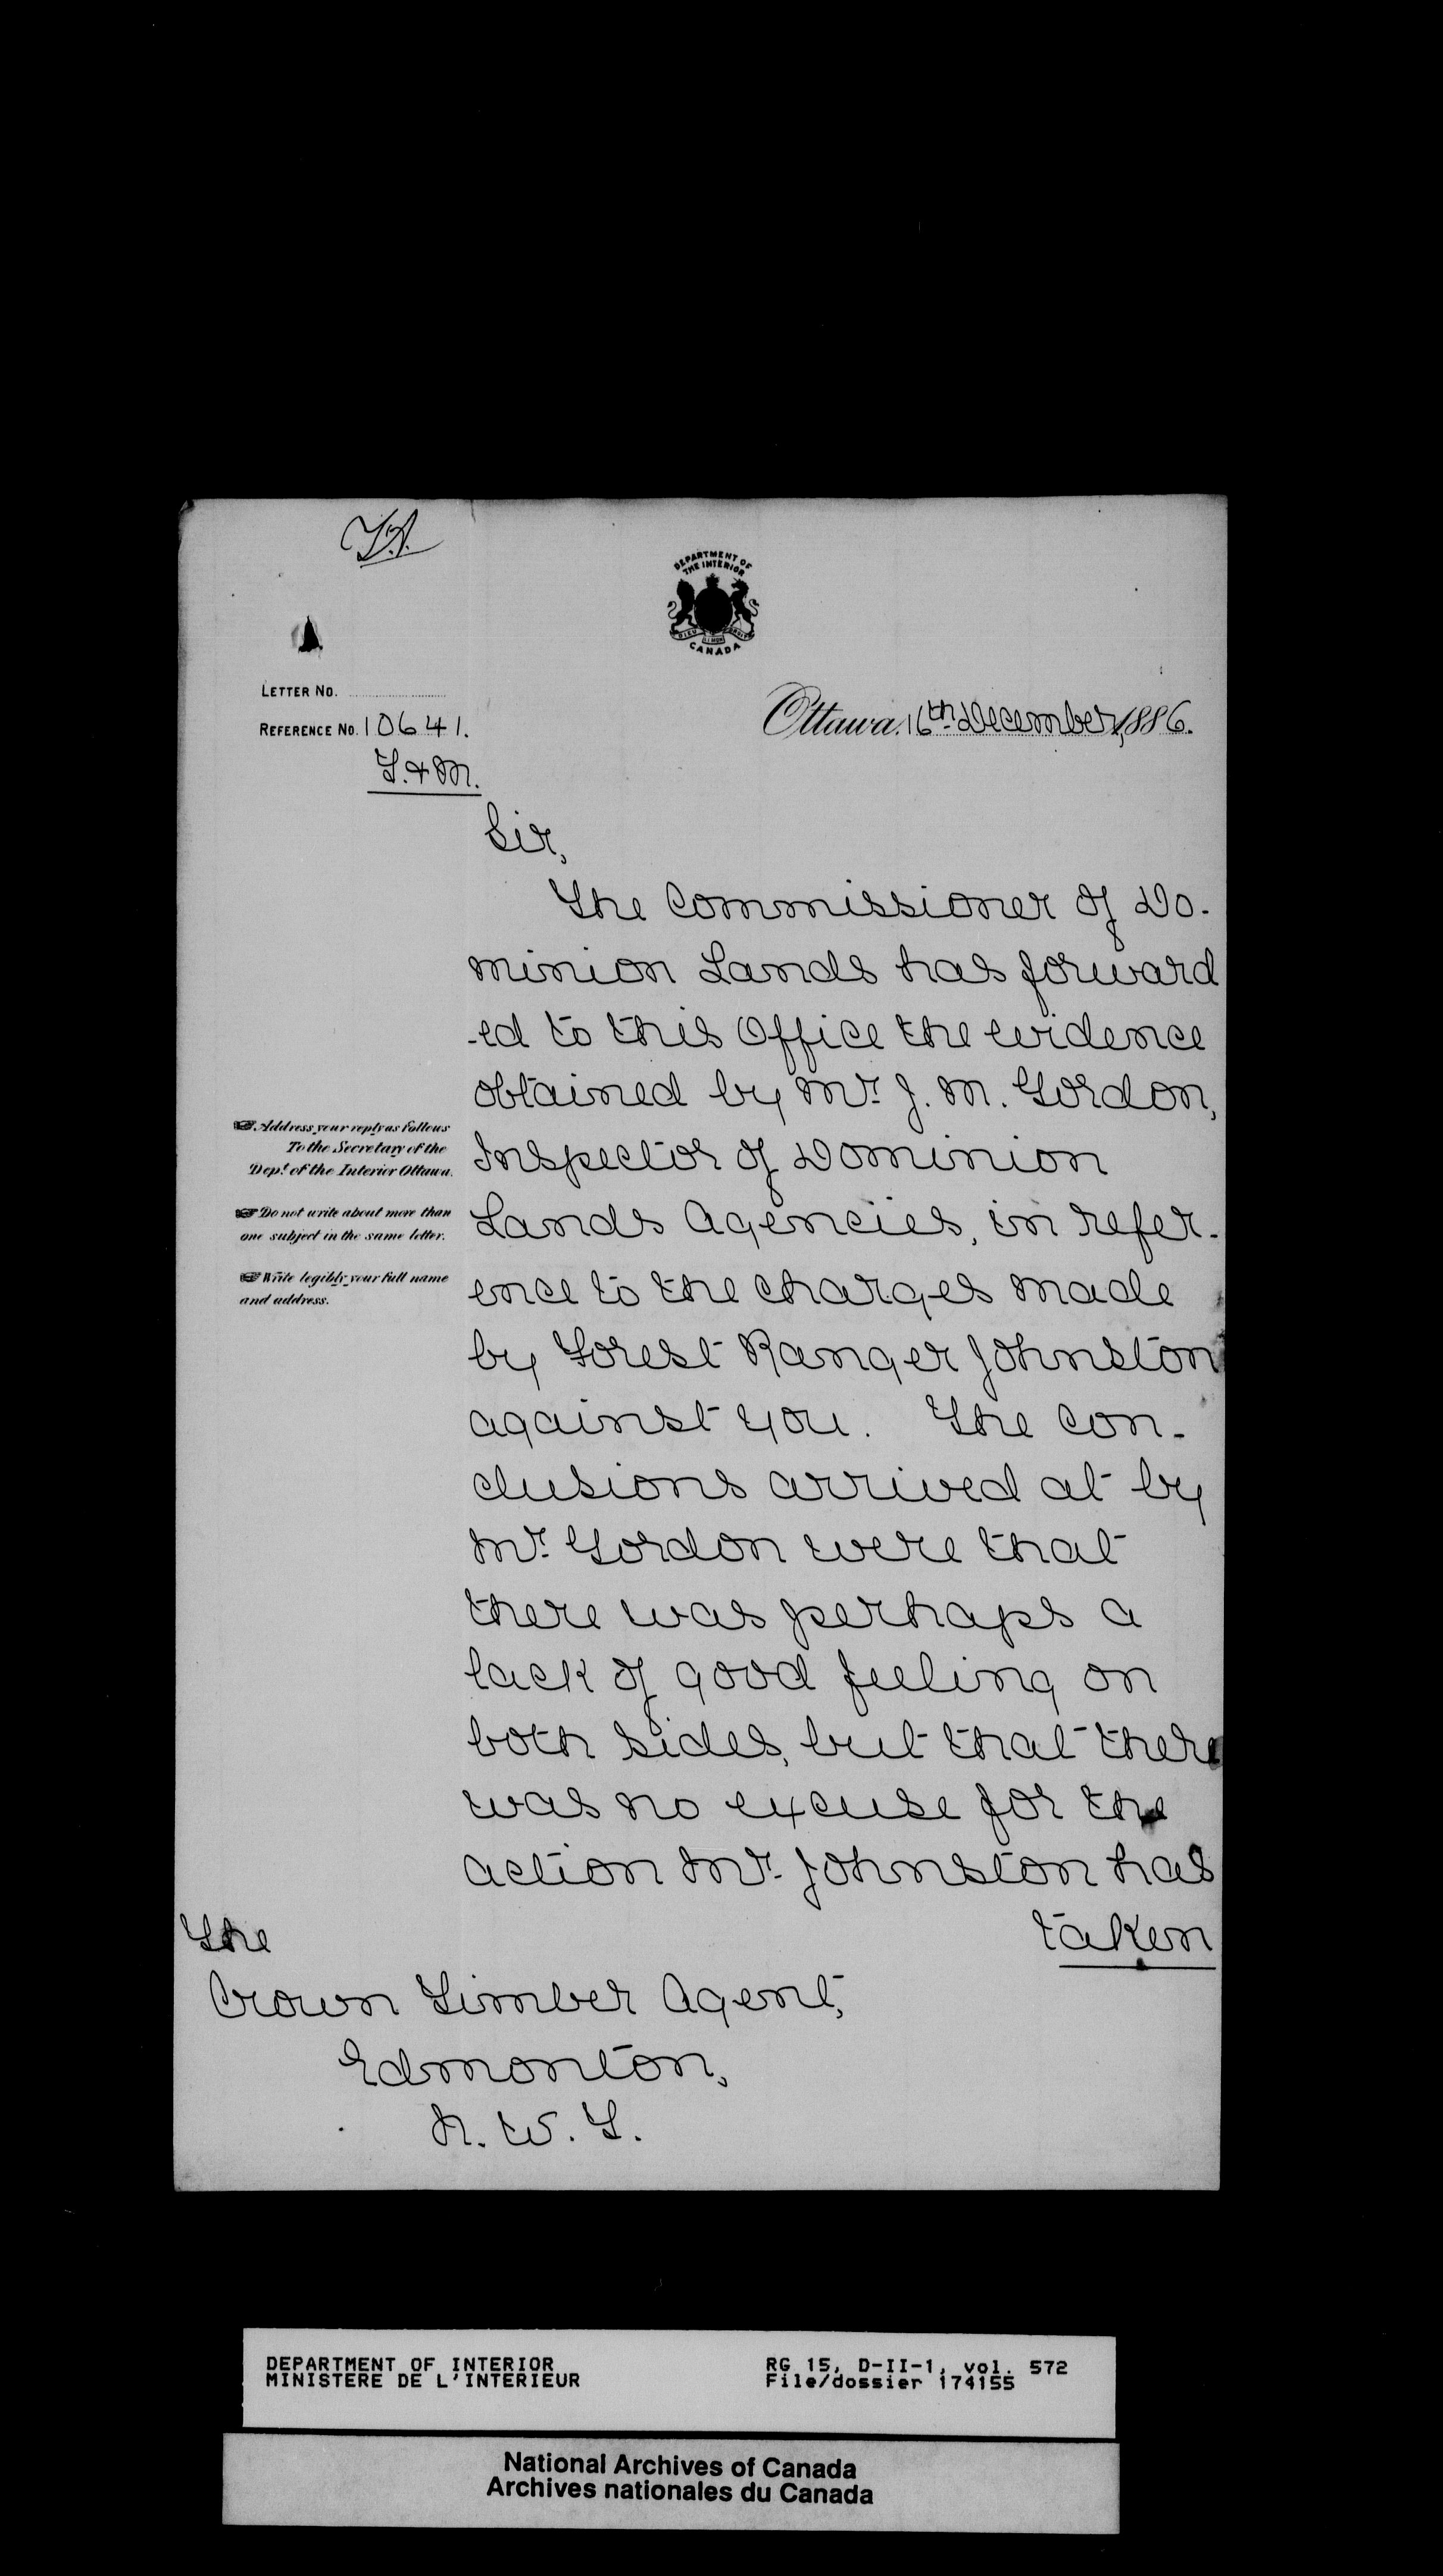 T.A.
DEPARTMENT OF
THE INTERIOR
DIEU ET MON DROIT
CANADA
LETTER NO.
REFERENCE NO. 10641.
T. & M.
Ottawa, 16th December, 1886.
Sir,
The Commissioner of Do-
minion Lands has forward
-ed to this Office the evidence
obtained by Mr. J. M. Gordon,
Inspector of Dominion
Lands Agencies, in refer-
ence to the charges made
by Forest Ranger Johnston
against you. The con-
clusions arrived at by
Mr. Gordon were that
there was perhaps a
lack of good feeling on
both sides, but that there
was no excuse for the
action Mr. Johnston has
taken
☞ Address your reply as follows
To the Secretary of the
Dept. of the Interior Ottawa.
☞ Do not write about more than
one subject in the same letter.
☞ Write legibly your full name
and address.
The
Crown Timber Agent,
Edmonton,
N. W. T.
DEPARTMENT OF INTERIOR
MINISTERE DE L'INTERIEUR
RG 15, D-II-1, vol. 572
File/dossier 174155
National Archives of Canada
Archives nationales du Canada